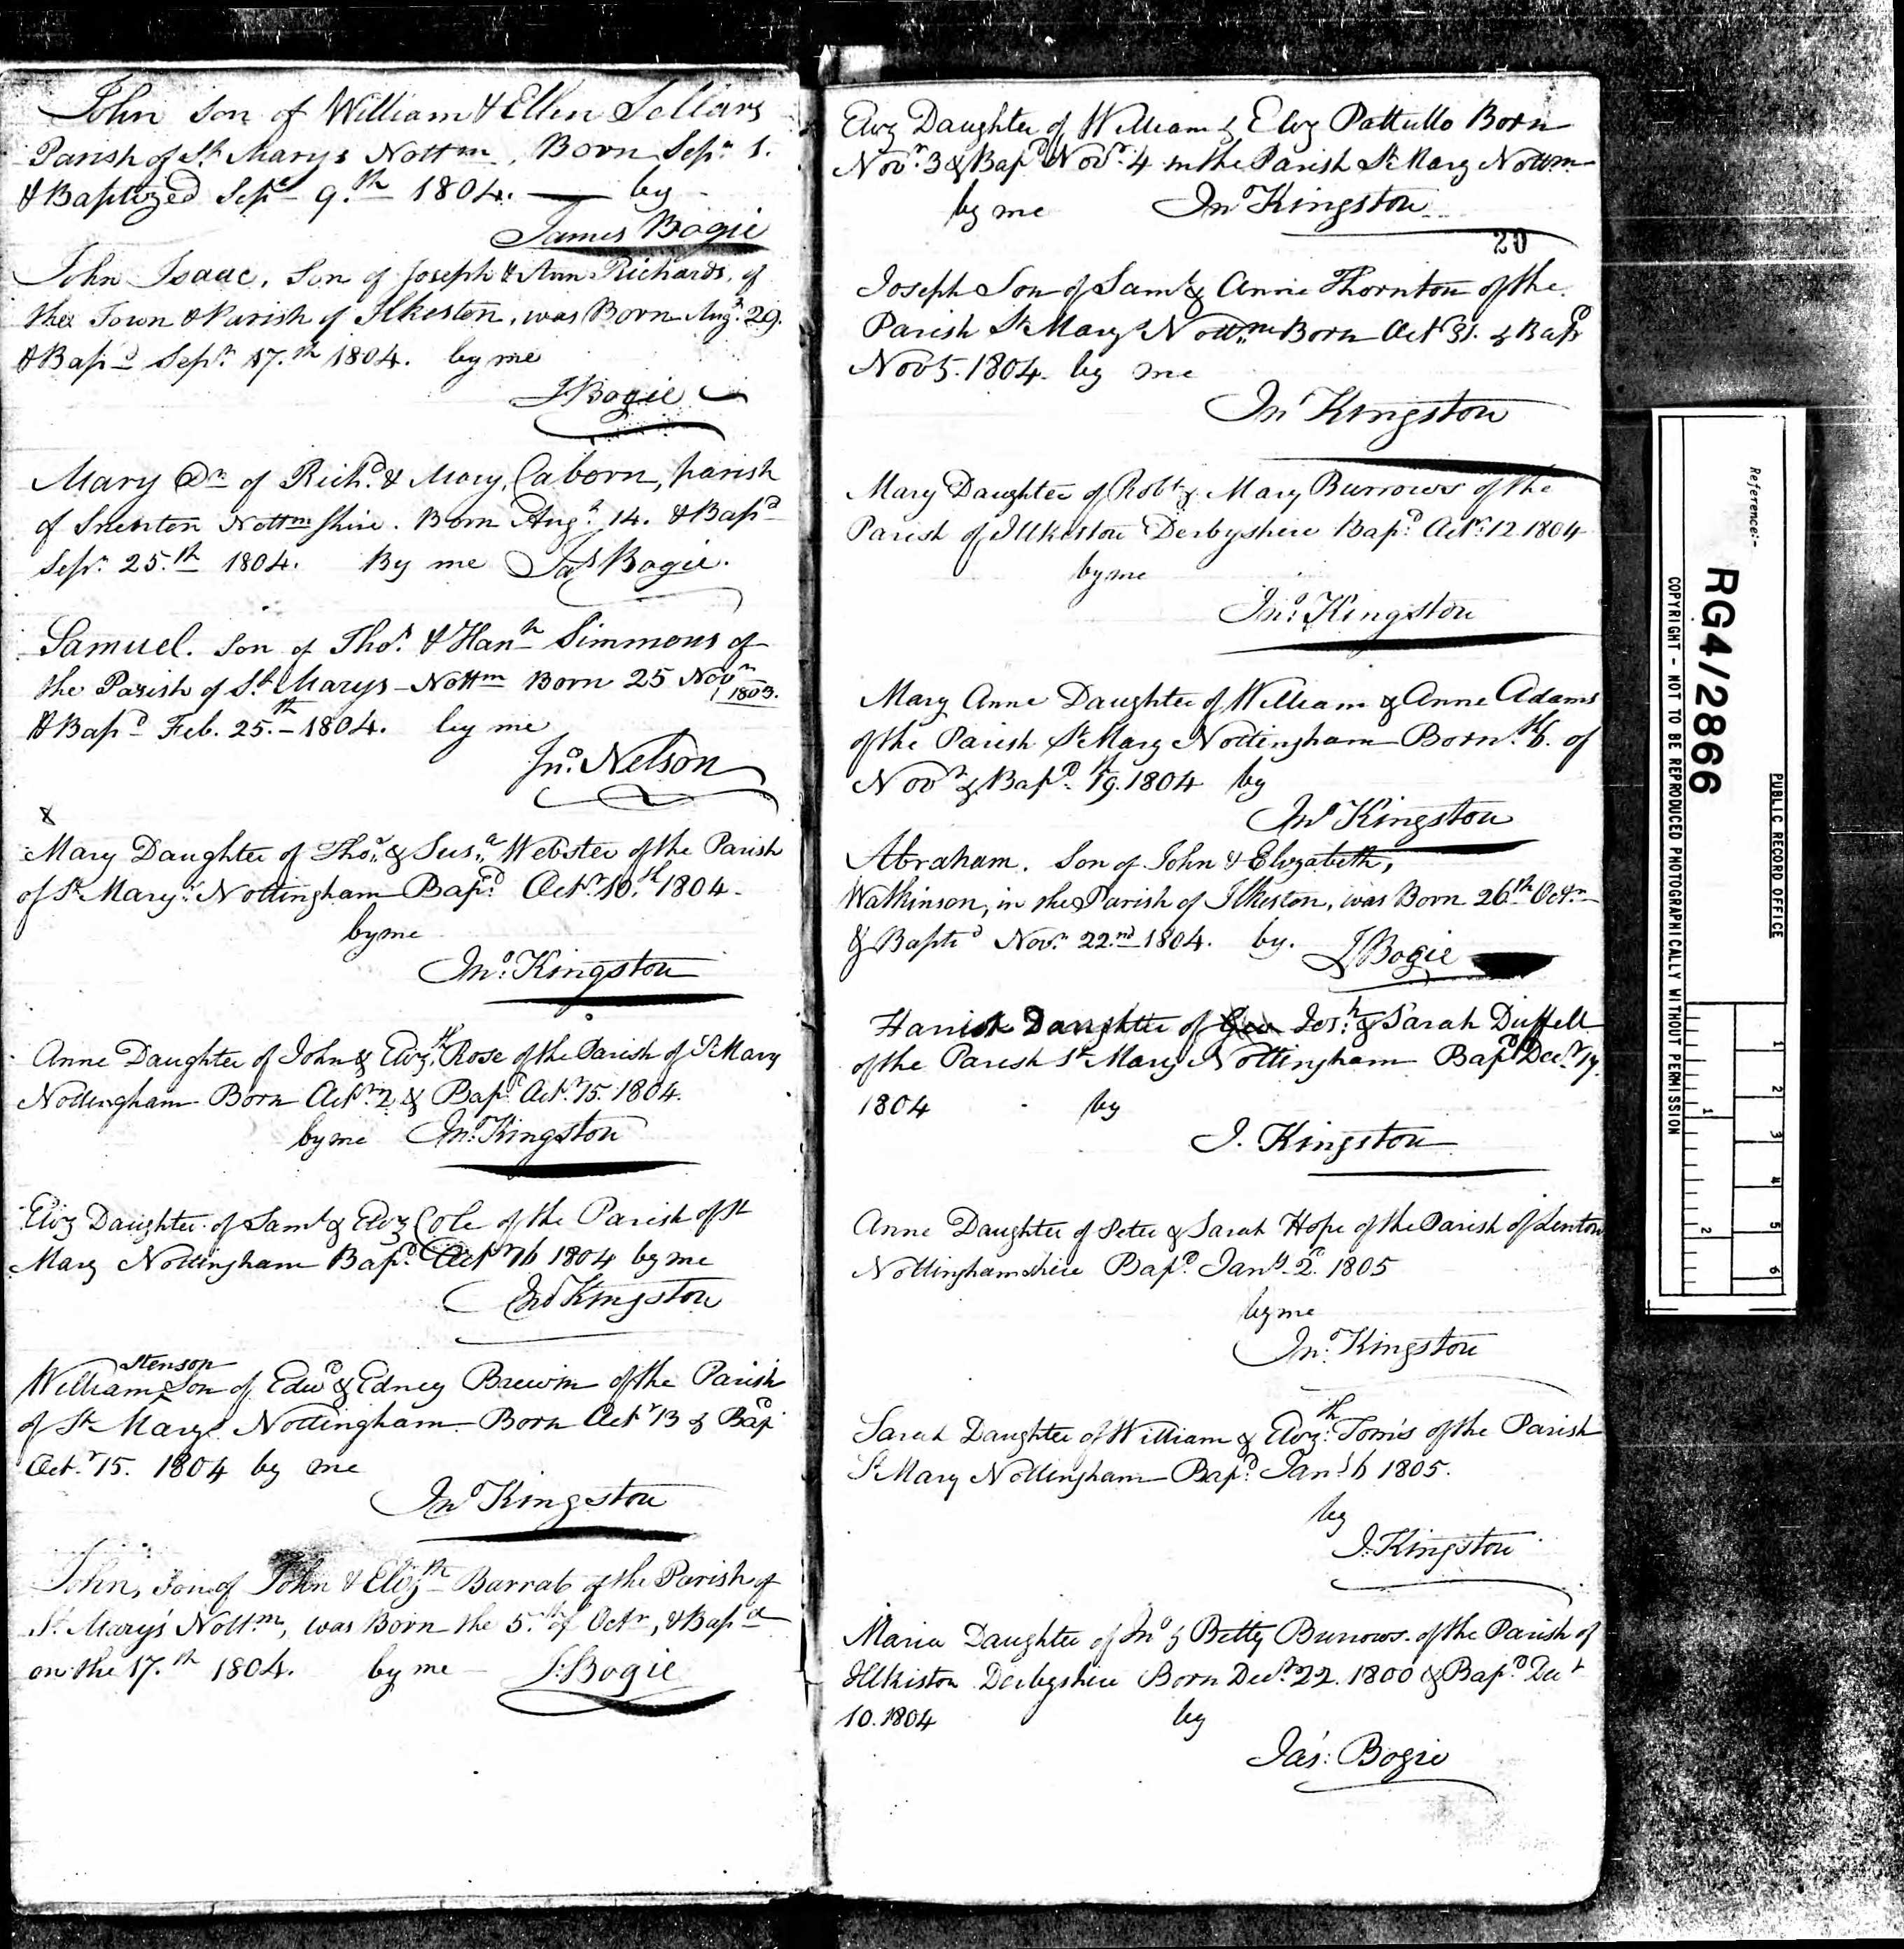 John son of William & Ellen Sellars
Parish of St Marys Nottm, Born Sepr 1.
& Baptized Sepr 9.th 1804. — by
James Bogie
John Isaac, Son of Joseph & Ann Richards, of
the Town & Parish of Ilkeston, was Born Augt 29.
& Bapd Sepr 17.th 1804. by me
J Bogie
Mary Dr of Richd & Mary Caborn, parish
of Snenton Nottmshire. Born Augt 14. & Bapd
Sepr 25.th 1804. By me Jas Bogie.
Samuel. Son of Thos. & Hanh Simmons of
the Parish of St. Marys Nottm Born 25 Novr
1803.
& Bapd Feb. 25.th 1804. by me
Jno. Nelson
x
Mary Daughter of Thos. & Susa. Webster of the Parish
of St Mary's Nottingham Bapd Octr 10.th 1804.
by me
Jno. Kingston
Anne Daughter of John & Elizth Rose of the Parish of St Mary
Nottingham Born Octr 2 & Bapd Octr 15. 1804.
by me Jno. Kingston
Eliz Daughter of Saml & Eliz Cole of the Parish of St
Mary Nottingham Bapd Octr 16 1804 by me
Jno Kingston
Stenson
William ^ Son of Edwd & Edney Brewin of the Parish
of St Marys Nottingham Born Octr 13 & Bapd
Octr 15. 1804 by me
Jno Kingston
John, son of John & Elizth Barrat of the Parish of
St. Mary's Nottm, was Born the 5.th of Octr, & Bapd
on the 17.th 1804. by me J. Bogie
Eliz Daughter of William & Eliz Pattullo Born
Novr 3 & Bapd Novr 4 in the Parish St Mary Nottm
by me Jno Kingston
20
Joseph Son of Saml & Anne Thornton of the
Parish St Mary Nottm Born Octr 31. & Bapd
Nov 5. 1804. by me
Jno Kingston
Mary Daughter of Robt & Mary Burrows of the
Parish of Ilkiston Derbyshire Bapd Octr 12 1804
by me
Jno. Kingston
Mary Anne Daughter of William & Anne Adams
of the Parish St Mary Nottingham Born th6. of
Novr & Bapd 19. 1804 by
Jno Kingston
Abraham. Son of John & Elizabeth,
Watkinson, in the Parish of Ilkeston, was Born 26th Octr
& Baptd Novr 22nd 1804. by. J Bogie
Harriot Daughter of Geo Josh & Sarah Duffell
of the Parish St Mary Nottingham Bapd Decr 19.
1804 by
J. Kingston
Anne Daughter of Peter & Sarah Hope of the Parish of Lenton
Nottinghamshire Bapd Jany 2d 1805
by me
Jno. Kingston
Sarah Daughter of William & Elizth Toms of the Parish
St Mary Nottingham Bapd Jany 6 1805.
by
J. Kingston
Maria Daughter of Jno & Betty Burrows of the Parish of
Ilkiston Derbyshire Born Decr 22. 1800 & Bapd Decr
10. 1804 by
Jas: Bogie
Reference:-
RG4/2866
PUBLIC RECORD OFFICE
COPYRIGHT - NOT TO BE REPRODUCED PHOTOGRAPHICALLY WITHOUT PERMISSION
1 2 3 4 5 6
1 2